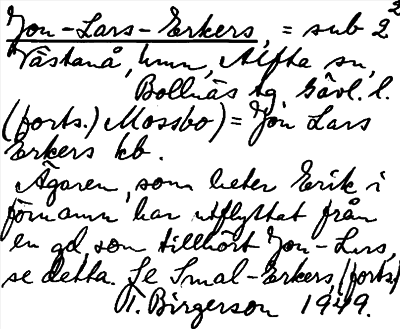 Jon-Lars-Erkers, = sub 2²
Västanå, hmn, Alfta sn,
Bollnäs tg Gävl. l.
(forts.) Mossbo) = Jon Lars
Erkers kb.
Ägaren, som heter Erik i
förnamn har utflyttat från
en gd, som tillhört Jon-Lars,
se detta. Se Smal-Erkers, (forts)
T. Birgerson 1949.